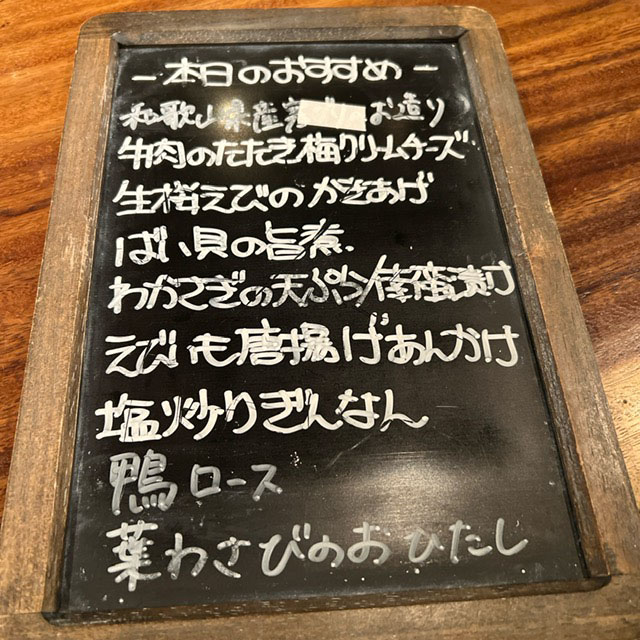 －本日のおすすめ－
和歌山県産 お造り
牛肉のたたき梅クリームチーズ
生桜えびのかきあげ
ばい貝の旨煮
わかさぎの天ぷら/南蛮漬け
えびいも唐揚げあんかけ
塩炒りぎんなん
鴨ロース
葉わさびのおひたし